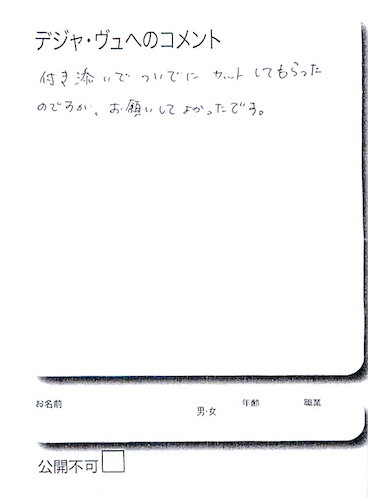 デジャ・ヴュへのコメント
付き添いで ついでに カットしてもらった
のですが、お願いしてよかったです。
お名前
男・女
年齢
職業
公開不可